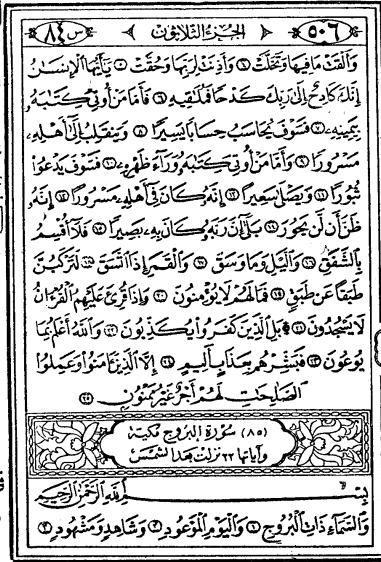 س ٨٤ الجزء الثلاثون ٥٠٦
وَأَلْقَتْ مَا فِيهَا وَتَخَلَّتْ ٤ وَأَذِنَتْ لِرَبِّهَا وَحُقَّتْ ٥ يَٰٓأَيُّهَا ٱلْإِنسَٰنُ
إِنَّكَ كَادِحٌ إِلَىٰ رَبِّكَ كَدْحًا فَمُلَٰقِيهِ ٦ فَأَمَّا مَنْ أُوتِيَ كِتَٰبَهُۥ
بِيَمِينِهِۦ ٧ فَسَوْفَ يُحَاسَبُ حِسَابًا يَسِيرًا ٨ وَيَنقَلِبُ إِلَىٰٓ أَهْلِهِۦ
مَسْرُورًا ٩ وَأَمَّا مَنْ أُوتِيَ كِتَٰبَهُۥ وَرَآءَ ظَهْرِهِۦ ١٠ فَسَوْفَ يَدْعُوا۟
ثُبُورًا ١١ وَيَصْلَىٰ سَعِيرًا ١٢ إِنَّهُۥ كَانَ فِىٓ أَهْلِهِۦ مَسْرُورًا ١٣ إِنَّهُۥ
ظَنَّ أَن لَّن يَحُورَ ١٤ بَلَىٰٓ إِنَّ رَبَّهُۥ كَانَ بِهِۦ بَصِيرًا ١٥ فَلَآ أُقْسِمُ
بِٱلشَّفَقِ ١٦ وَٱلَّيْلِ وَمَا وَسَقَ ١٧ وَٱلْقَمَرِ إِذَا ٱتَّسَقَ ١٨ لَتَرْكَبُنَّ
طَبَقًا عَن طَبَقٍ ١٩ فَمَا لَهُمْ لَا يُؤْمِنُونَ ٢٠ وَإِذَا قُرِئَ عَلَيْهِمُ ٱلْقُرْءَانُ
لَا يَسْجُدُونَ ٢١ بَلِ ٱلَّذِينَ كَفَرُوا۟ يُكَذِّبُونَ ٢٢ وَٱللَّهُ أَعْلَمُ بِمَا
يُوعُونَ ٢٣ فَبَشِّرْهُم بِعَذَابٍ أَلِيمٍ ٢٤ إِلَّا ٱلَّذِينَ ءَامَنُوا۟ وَعَمِلُوا۟
ٱلصَّٰلِحَٰتِ لَهُمْ أَجْرٌ غَيْرُ مَمْنُونٍ ٢٥
(٨٥) سُورَةُ البُرُوجِ مَكِّيَّة
وآياتها ٢٢ نزلت بعد الشمس
بِسْمِ ٱللَّهِ ٱلرَّحْمَٰنِ ٱلرَّحِيمِ
وَٱلسَّمَآءِ ذَاتِ ٱلْبُرُوجِ ١ وَٱلْيَوْمِ ٱلْمَوْعُودِ ٢ وَشَاهِدٍ وَمَشْهُودٍ ٣